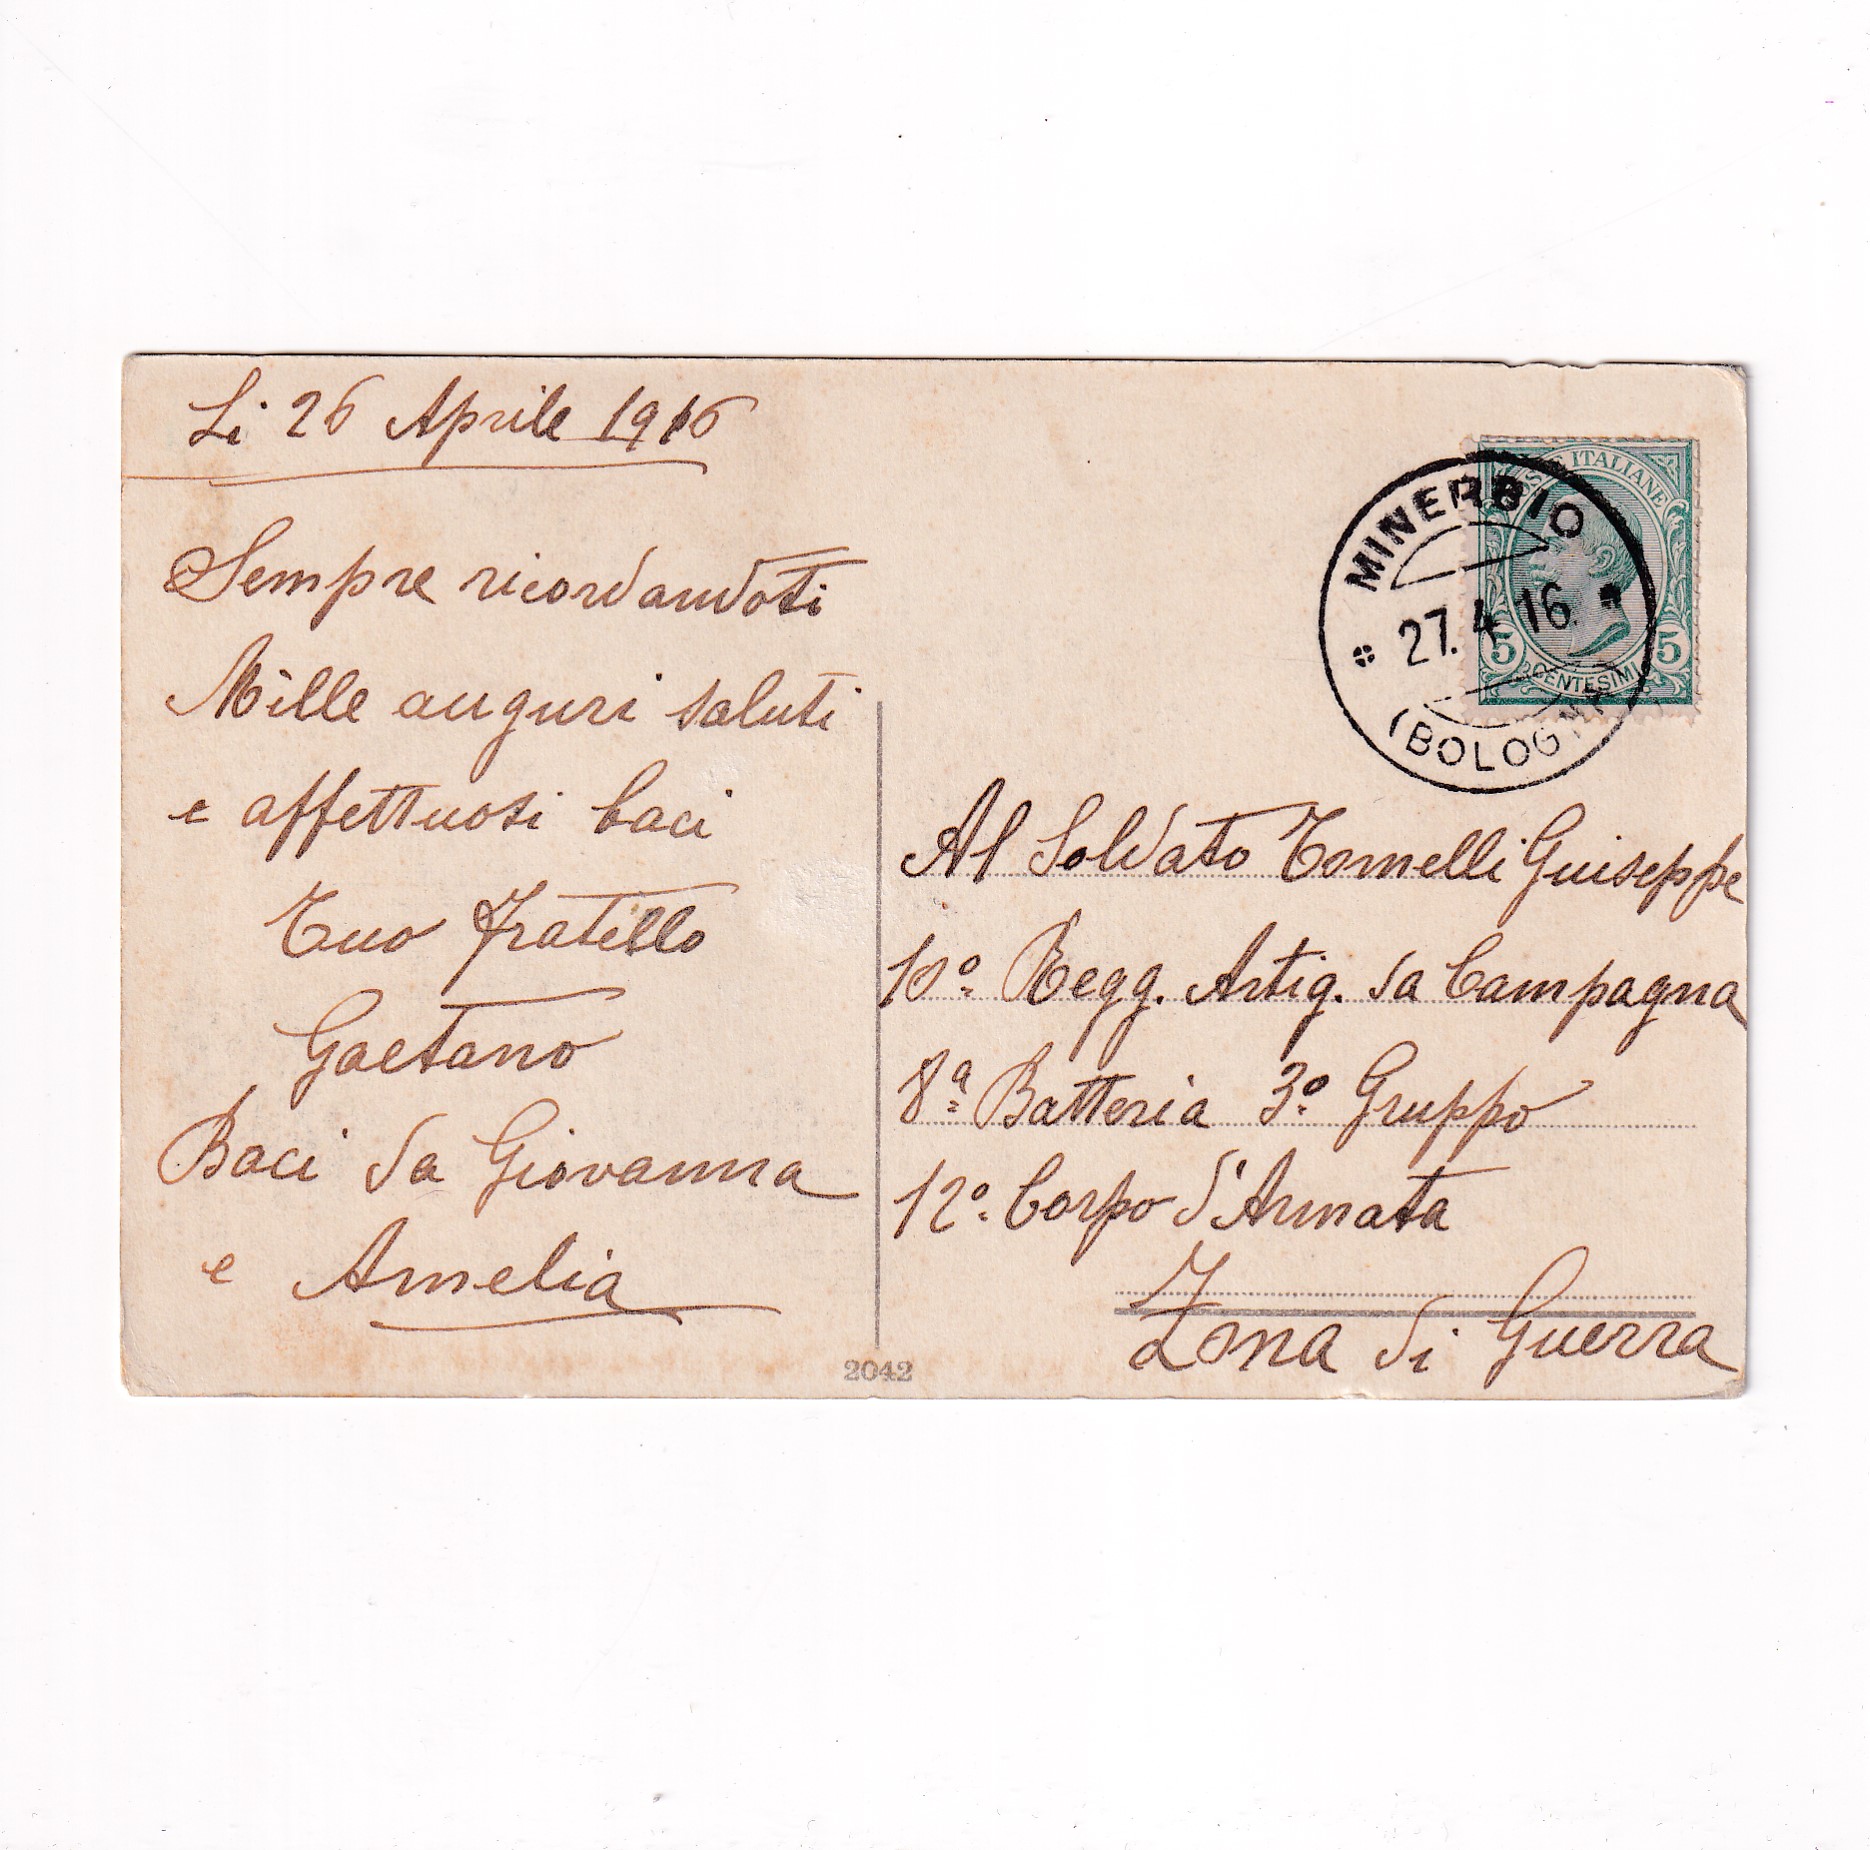 Li 26 Aprile 1916
Sempre ricordandoti
Mille auguri saluti
e affettuosi baci
Tuo Fratello
Gaetano
Baci da Giovanna
e Amelia
POSTE ITALIANE
5 CENTESIMI 5
MINERBIO
27.4 16.
(BOLOGNA
Al Soldato Tomelli Guiseppe
10º Regg. Artig. da Campagna
8ª Batteria 3º Gruppo
12º Corpo d'Armata
Zona di Guerra
2042